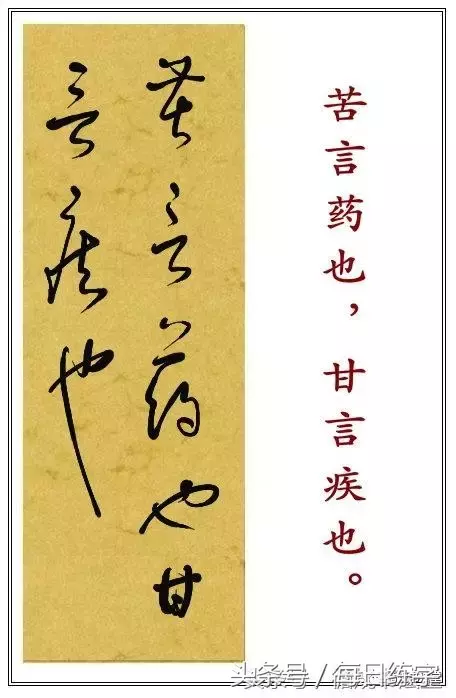 苦言药也甘
言疾也
苦言药也，甘言疾也。
头条号/每日练字